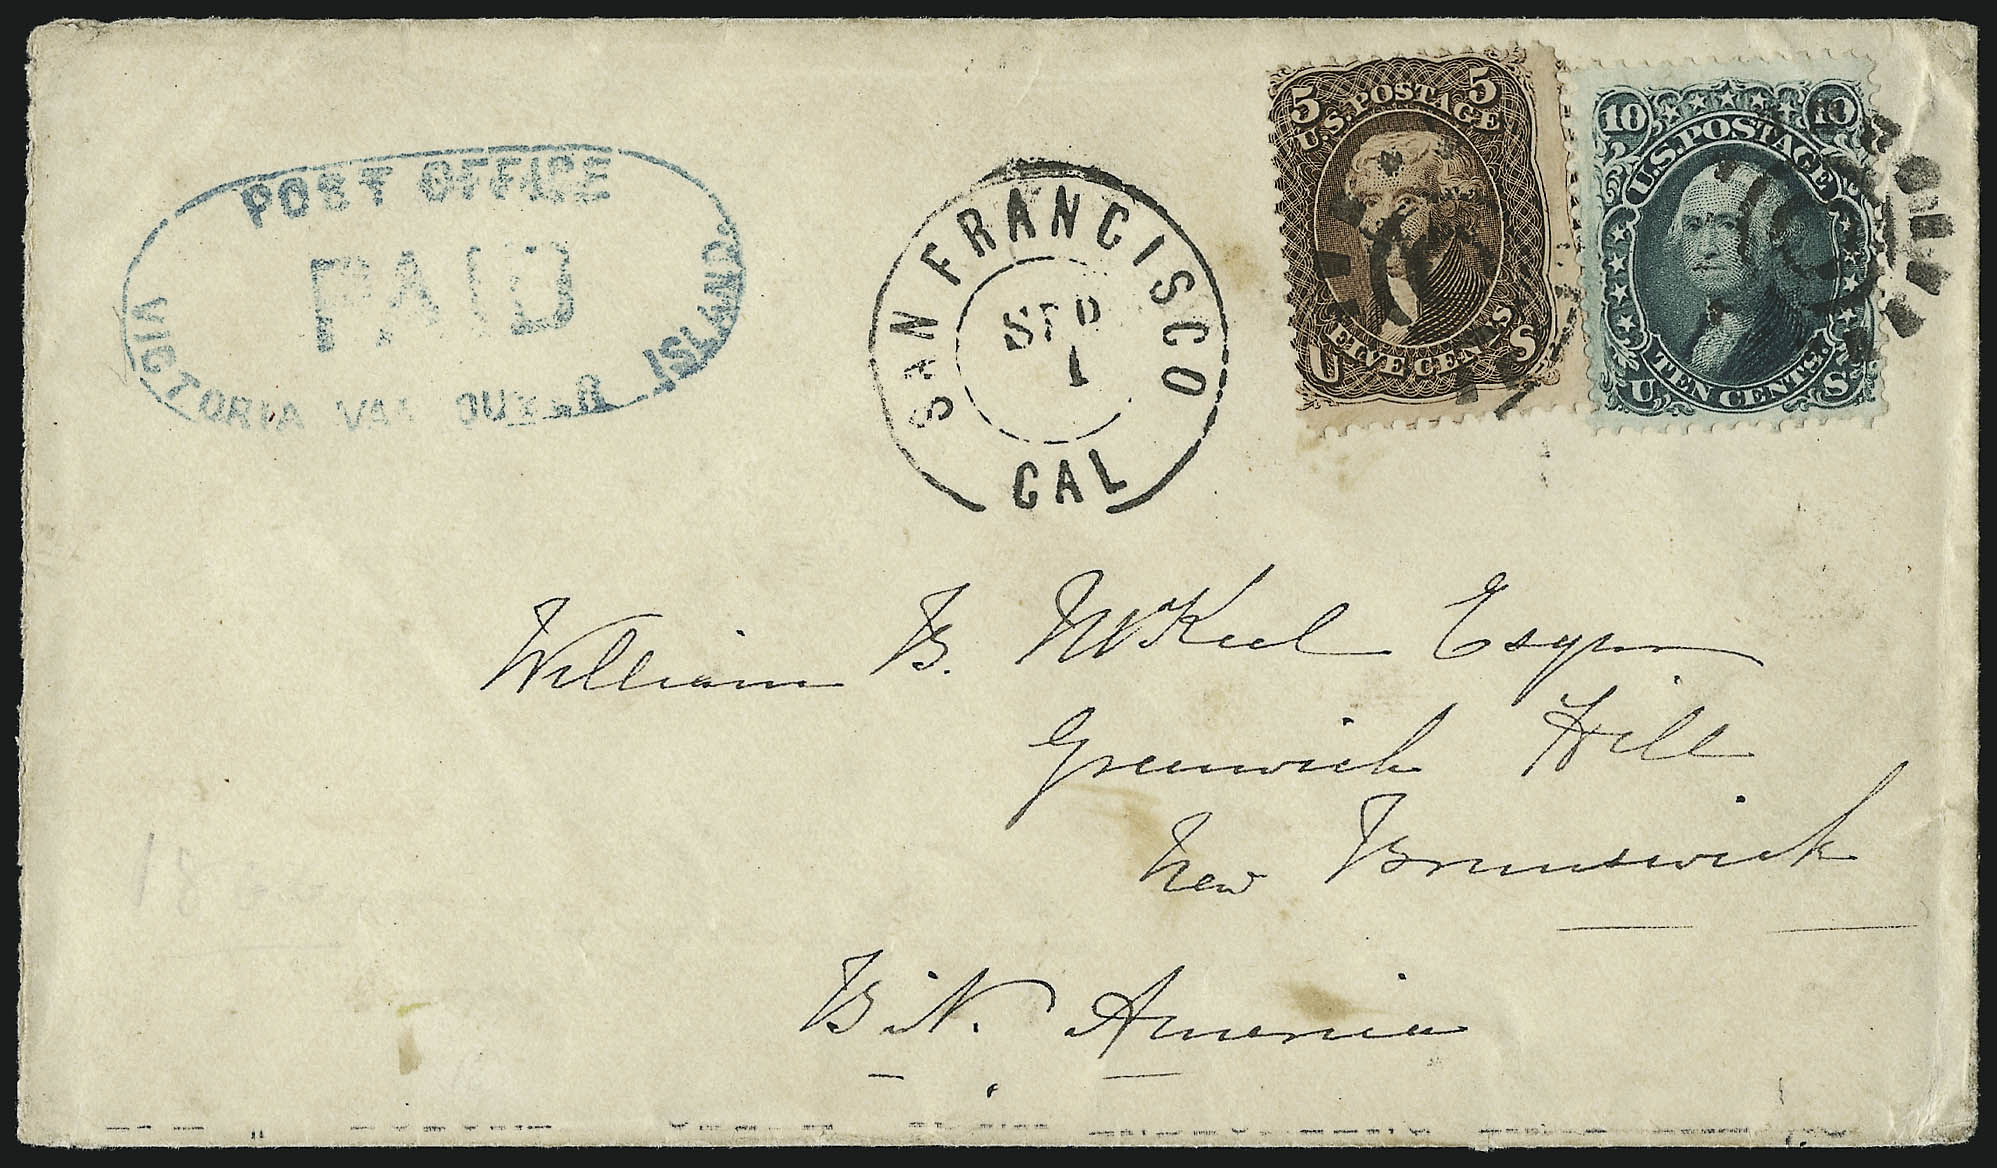 POST OFFICE
PAID
VICTORIA VANCOUVER ISLAND.
SAN FRANCISCO
SEP
1
CAL
5 5
U.S. POSTAGE
FIVE CENTS.
U S
10 10
U.S. POSTAGE
TEN CENTS.
U S
William B. McKeel Esqr
Greenwich Hill
New Brunswick
B. N. America
18